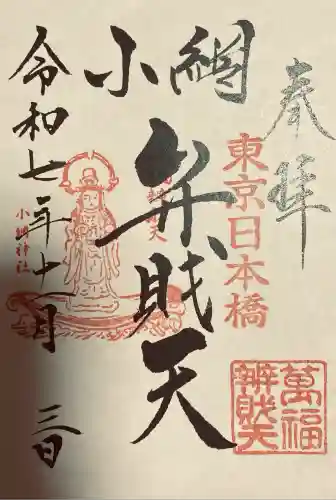 奉拝
東京日本橋
萬福
辨財天
小網
弁財天
令和七年十一月三日
小網神社